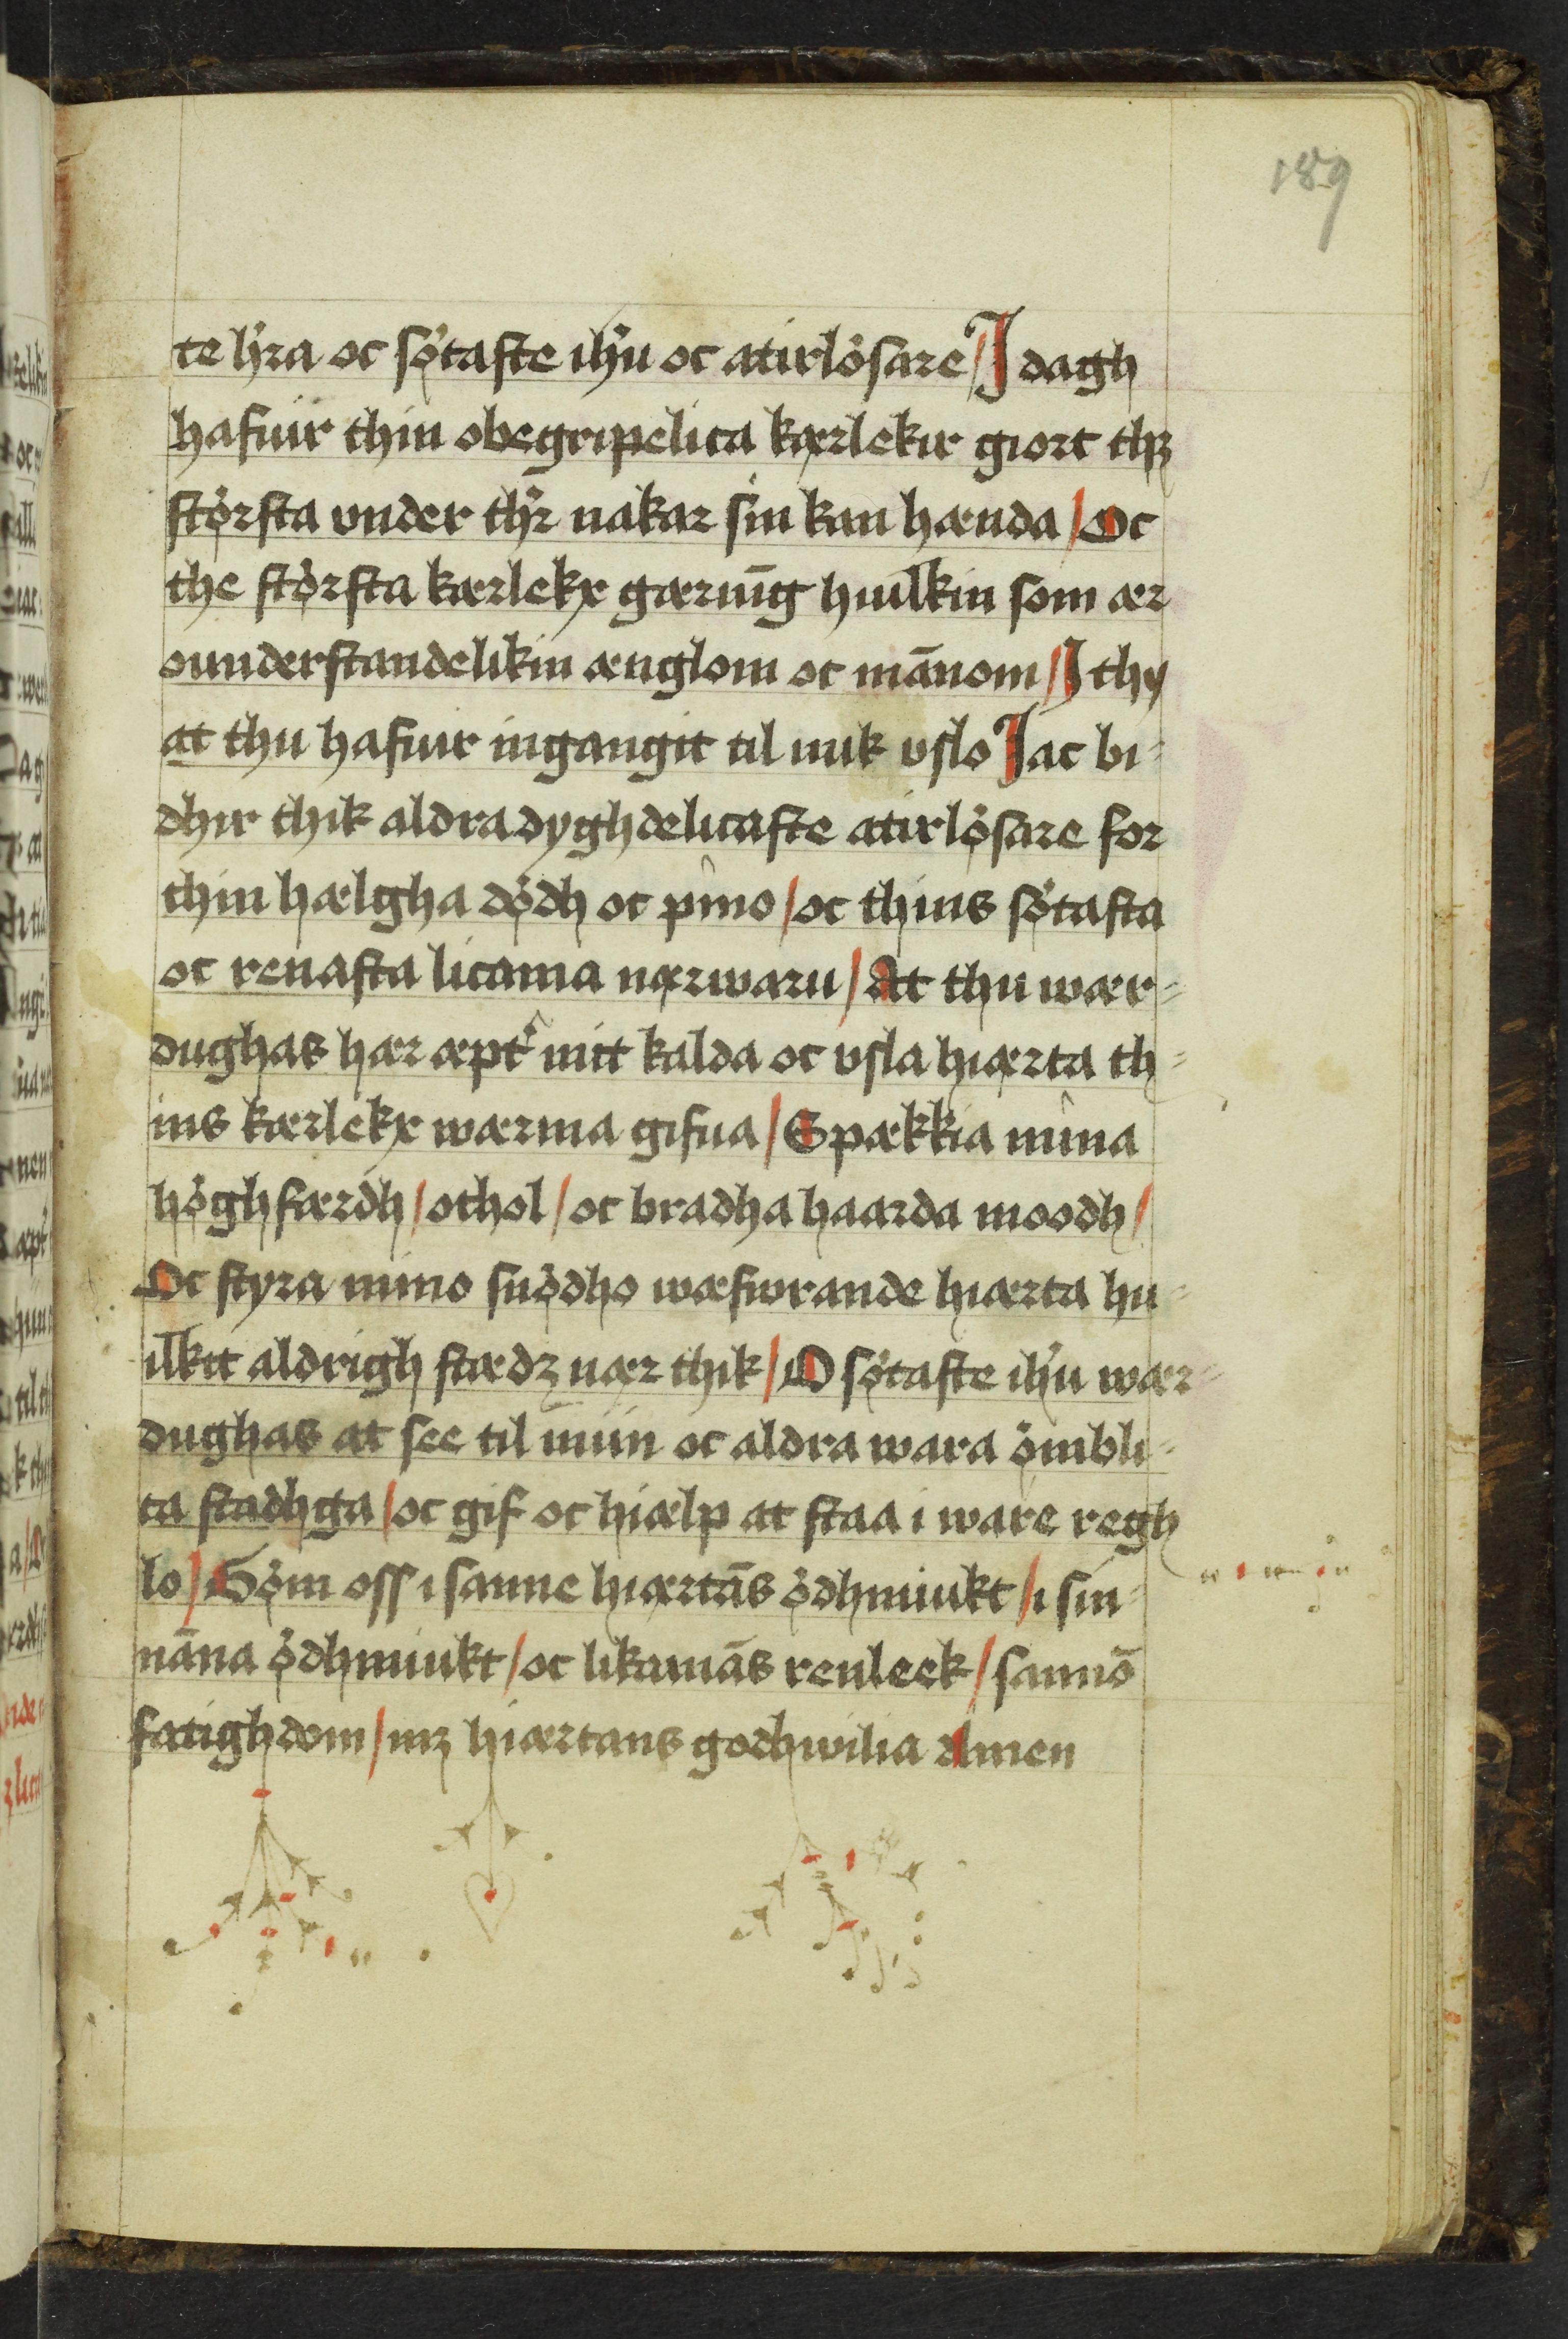 189
te h'ra oc sötaste ih'u oc atirlösare / J dagh
hafuir thin obegripelica kærlekir giort thz
största vnder th'r nakar sin kan hænda / Oc
the största kærlekx gærnīg huilkin som ær
ounderstandelikin ænglom oc mānom / J thy
at thu hafuir ingangit til mik vslo Jac bi-
dhir thik aldra dyghdelicaste atirlösare for
thin hælgha dödh oc pino / oc thins sötasta
oc renasta licama nærwaru / At thu wær-
dughas hær æpt' mit kalda oc vsla hiærta th-
ins kærlekx wærma gifua / Spækkia mina
höghfærdh / othol / oc bradha haarda moodh /
Oc styra mino snödho wæfwrande hiærta hu-
ilkit aldrigh stædz nær thik / O sötaste ih'u wær-
dughas at see til miin oc aldra wara ömbli-
ta stadhga / oc gif oc hiælp at staa i ware regh
lo / Göm oss i sanne hiærtās ödhmiukt / i sin-
nāna ödhmiukt / oc likamās renleek / sannō
fatighdom / mz hiærtans godhwilia Amen